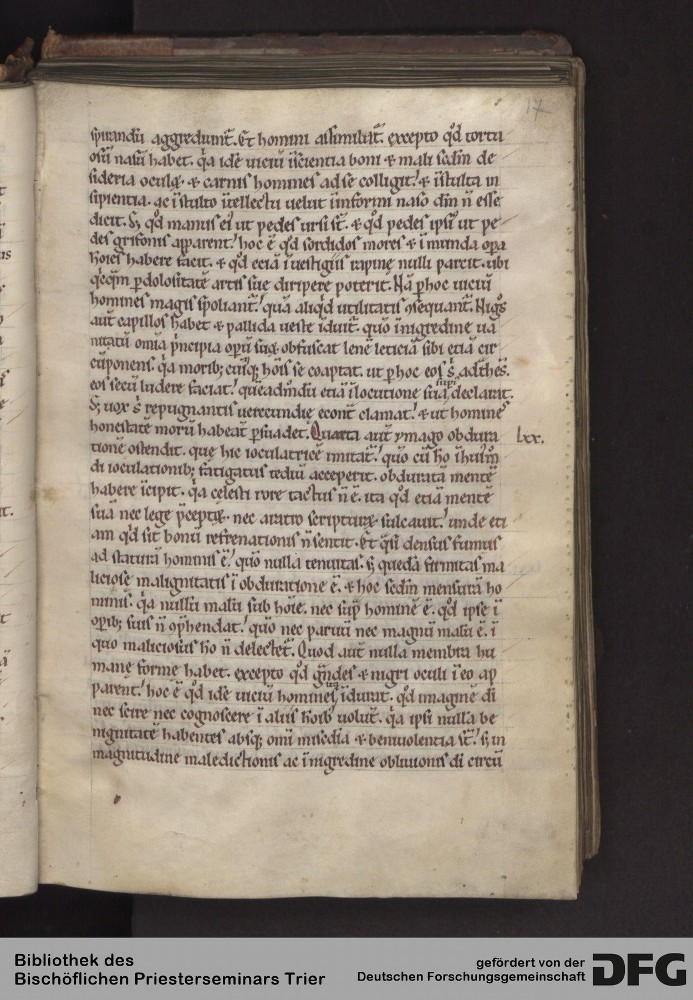 spirandū aggrediunt̄. Et homini assimilat̄. excepto qd̄ tortu
osū nasū habet. q̄a idē uiciū ī scientia boni & mali scdm̄ de
sideria oculoꝝ & carnis homines ad se colligit. & ī stulta in
sipientia. ac ī stulto ītellectu uelut ī informi naso dm̄ n̄ esse
dicit. Sꝫ qd̄ manus ei ut pedes ursi st̄. & qd̄ pedes ipsi ut pe
des grifonis apparent. hoc ē qd̄ sordidos mores & īmunda opa
hoies habere facit. & qd̄ eciā ī uestigiis rapine nulli parcit. ubi
qcqm̄ p dolositatē artis sue diripere poterit. Nā p hoc uiciū
homines magis spoliant̄. quā aliqd utilitatis ꝯsequant̄. Nigs
aut̄ capillos habet & pallida ueste īduit̄. quo ī nigredine ua
nitatū omīa p̄ncipia opū suoꝝ obfuscat lenē leticiā sibi etiā cir
cūponens. q̄a moribꝫ cuiꝰqꝫ hoīs se coaptat. ut p hoc eos s̄ adthes.
eos secū ludere faciat. quēadm̄dū etiā ī locutione sua supi declarat̄.
Sꝫ uox s̄ repugnantis uerecundie econt̄ clamat. & ut homines
honestatē morū habeāt psuadet. Quarta aut̄ ymago obdura
lxx.
tionē ostendit. que hic ioculatricē imitat̄. quo cū ho
di ioculationibꝫ fatigatus tediū acceperit. obduratā mentē
habere īcipit. q̄a celesti rore tactus n̄ ē. ita qd̄ etiā mentē
suā nec lege p̄ceptoꝝ. nec aratro scripturaꝝ sulcauit. unde eti
am qd̄ sit bonū refrenationis n̄ sentit. Et q̄si densus fumus
ad staturā hominis ē. quo nulla tenuitas. sꝫ quedā firmitas ma
liciose malignitatis ī obduratione ē. & hoc scdm̄ mensurā ho
minis. q̄a nullū malū sub hoīe. nec sup hominē ē. qd̄ ipse ī
opibꝫ suis n̄ ꝯp̄hendat. quo nec paruū nec magnū malū ē. ī
quo maliciosus ho n̄ delectet̄. Quod aut̄ nulla membra hu
mane forme habet. excepto qd̄ gn̄des & nigri oculi ī eo ap
parent. hoc ē qd̄ idē uiciū homines ita īdurat. qd̄ imaginē dī
nec scire nec cognoscere ī aliis hoībꝫ uolūt. q̄a ipsi nulla be
nignitatē habentes absqꝫ omī misc̄dia & beniuolentia st̄. sꝫ in
magnitudine maledictionis ac ī nigredine obliuionis dī circū
17
Bibliothek des
Bischöflichen Priesterseminars Trier
gefördert von der
Deutschen Forschungsgemeinschaft
DFG